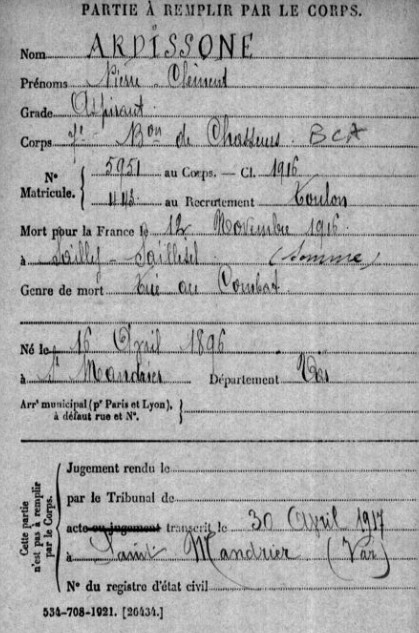 PARTIE À REMPLIR PAR LE CORPS.
Nom ARDISSONE
Prénoms Pierre - Clément
Grade Aspirant
Corps 7e Bon de Chasseurs. BCA
No Matricule. { 5951 au Corps. — Cl. 1916
443 au Recrutement Toulon
Mort pour la France le 12 Novembre 1916
à Sailly - Saillisel (Somme)
Genre de mort Tué au Combat
Né le 16 Avril 1896
à St Mandrier Département Var
Arrt municipal (pr Paris et Lyon), à défaut rue et No. }
Cette partie n'est pas à remplir par le Corps. {
Jugement rendu le
par le Tribunal de
acte ou jugement transcrit le 30 Avril 1917
à Saint Mandrier (Var)
No du registre d'état civil
534-708-1921. [26434.]